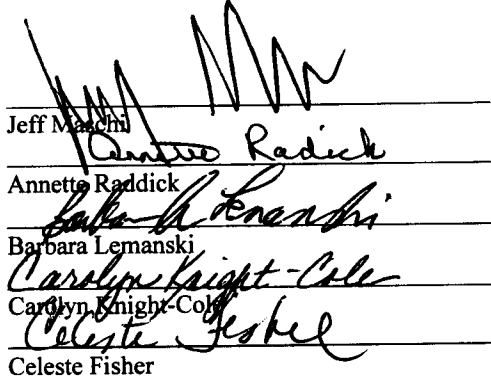 Jeff Maschi
Annette Radick
Annette Raddick
Barbara A Lemanski
Barbara Lemanski
Carolyn Knight-Cole
Carolyn Knight-Cole
Celeste Fisher
Celeste Fisher